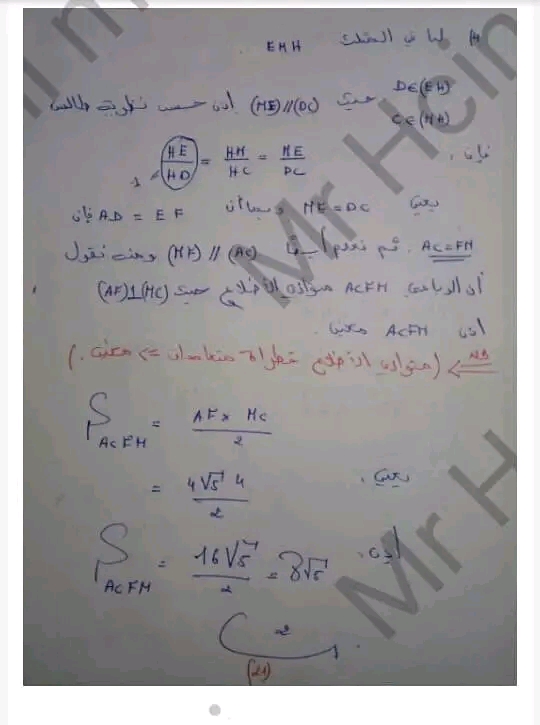 4) لنا في المثلث EMH
D∈(EH)
C∈(MH)
حيث (ME)//(DC) إذن حسب نظرية طالس
فإن: HE/HD = HM/HC = ME/DC
1
يعني ME=DC وبما أن AD = EF فإن
AC=FM. ثم نعلم أيضا (AC) // (MF) ومنه نقول
أن الرباعي ACFM متوازي الأضلاع حيث (MC)⊥(AF)
إذن ACFM معين.
NB (متوازي الأضلاع قطراه متعامدان => معين.)
S ACFM = AF x MC / 2
يعني: = 4√5 4 / 2
إذن: S ACFM = 16√5 / 2 = 8√5
2
(21)
Mr Hcin
Mr H